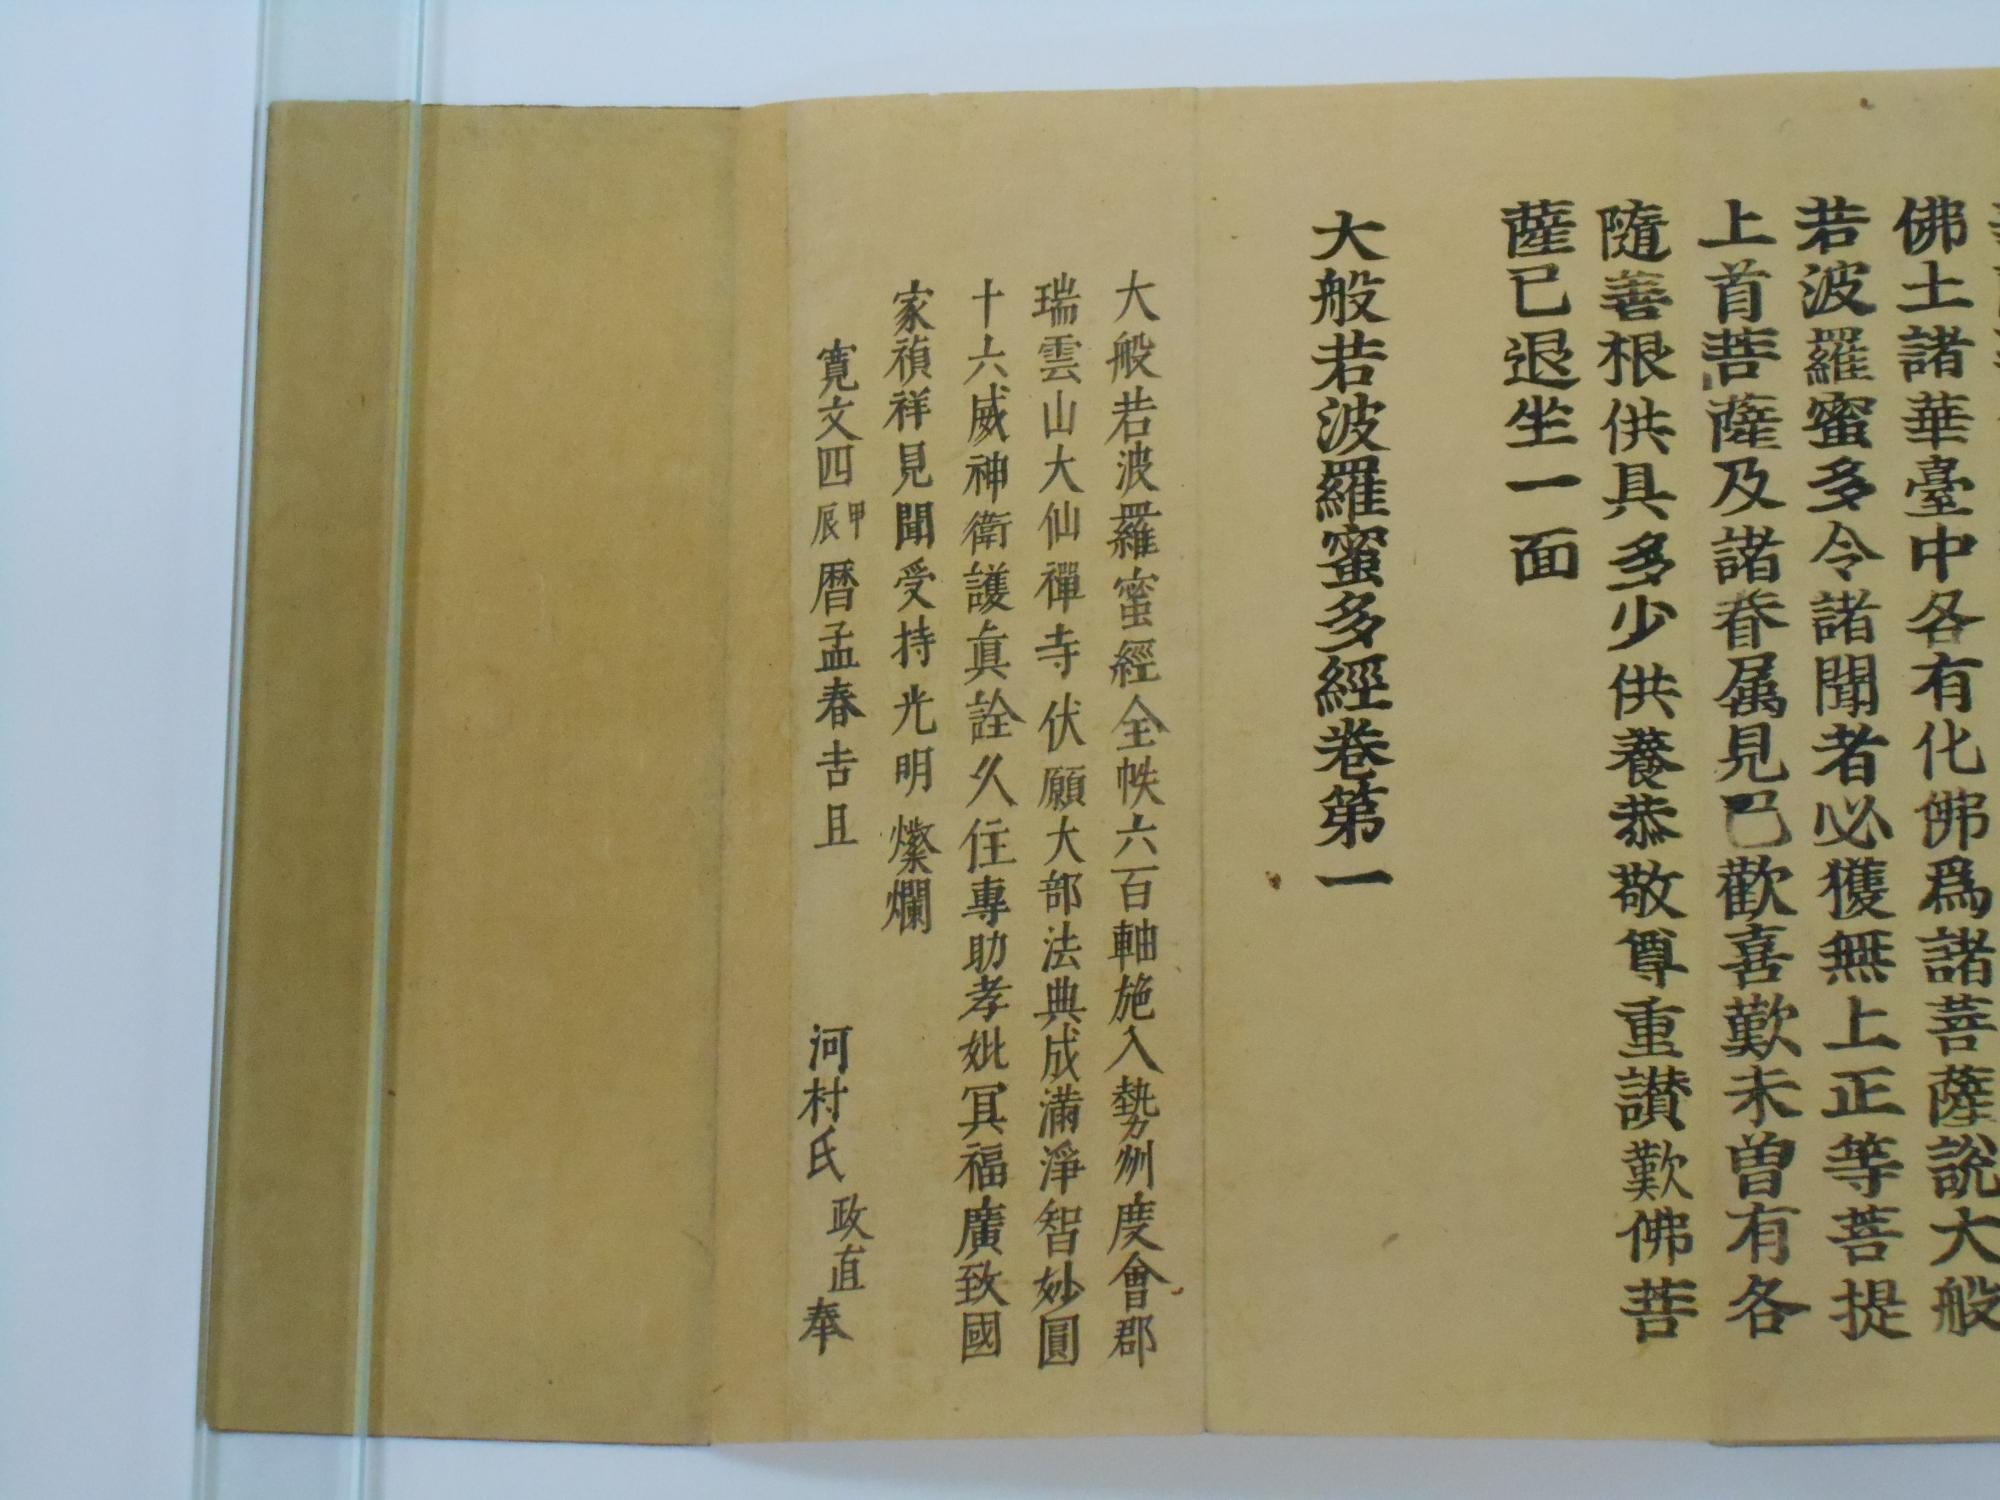 佛土諸華臺中各有化佛爲諸菩薩說大般
若波羅蜜多令諸聞者必獲無上正等菩提
上首菩薩及諸眷属見已歡喜歎未曽有各
隨善根供具多少供養恭敬尊重讃歎佛菩
薩已退坐一面
大般若波羅蜜多經卷第一
大般若波羅蜜經全帙六百軸施入勢州度會郡
瑞雲山大仙禪寺伏願大部法典成滿淨智妙圓
十六威神衛護眞詮久住專助孝妣冥福廣致國
家禎祥見聞受持光明燦爛
寛文四甲辰暦孟春吉旦
河村氏政直奉